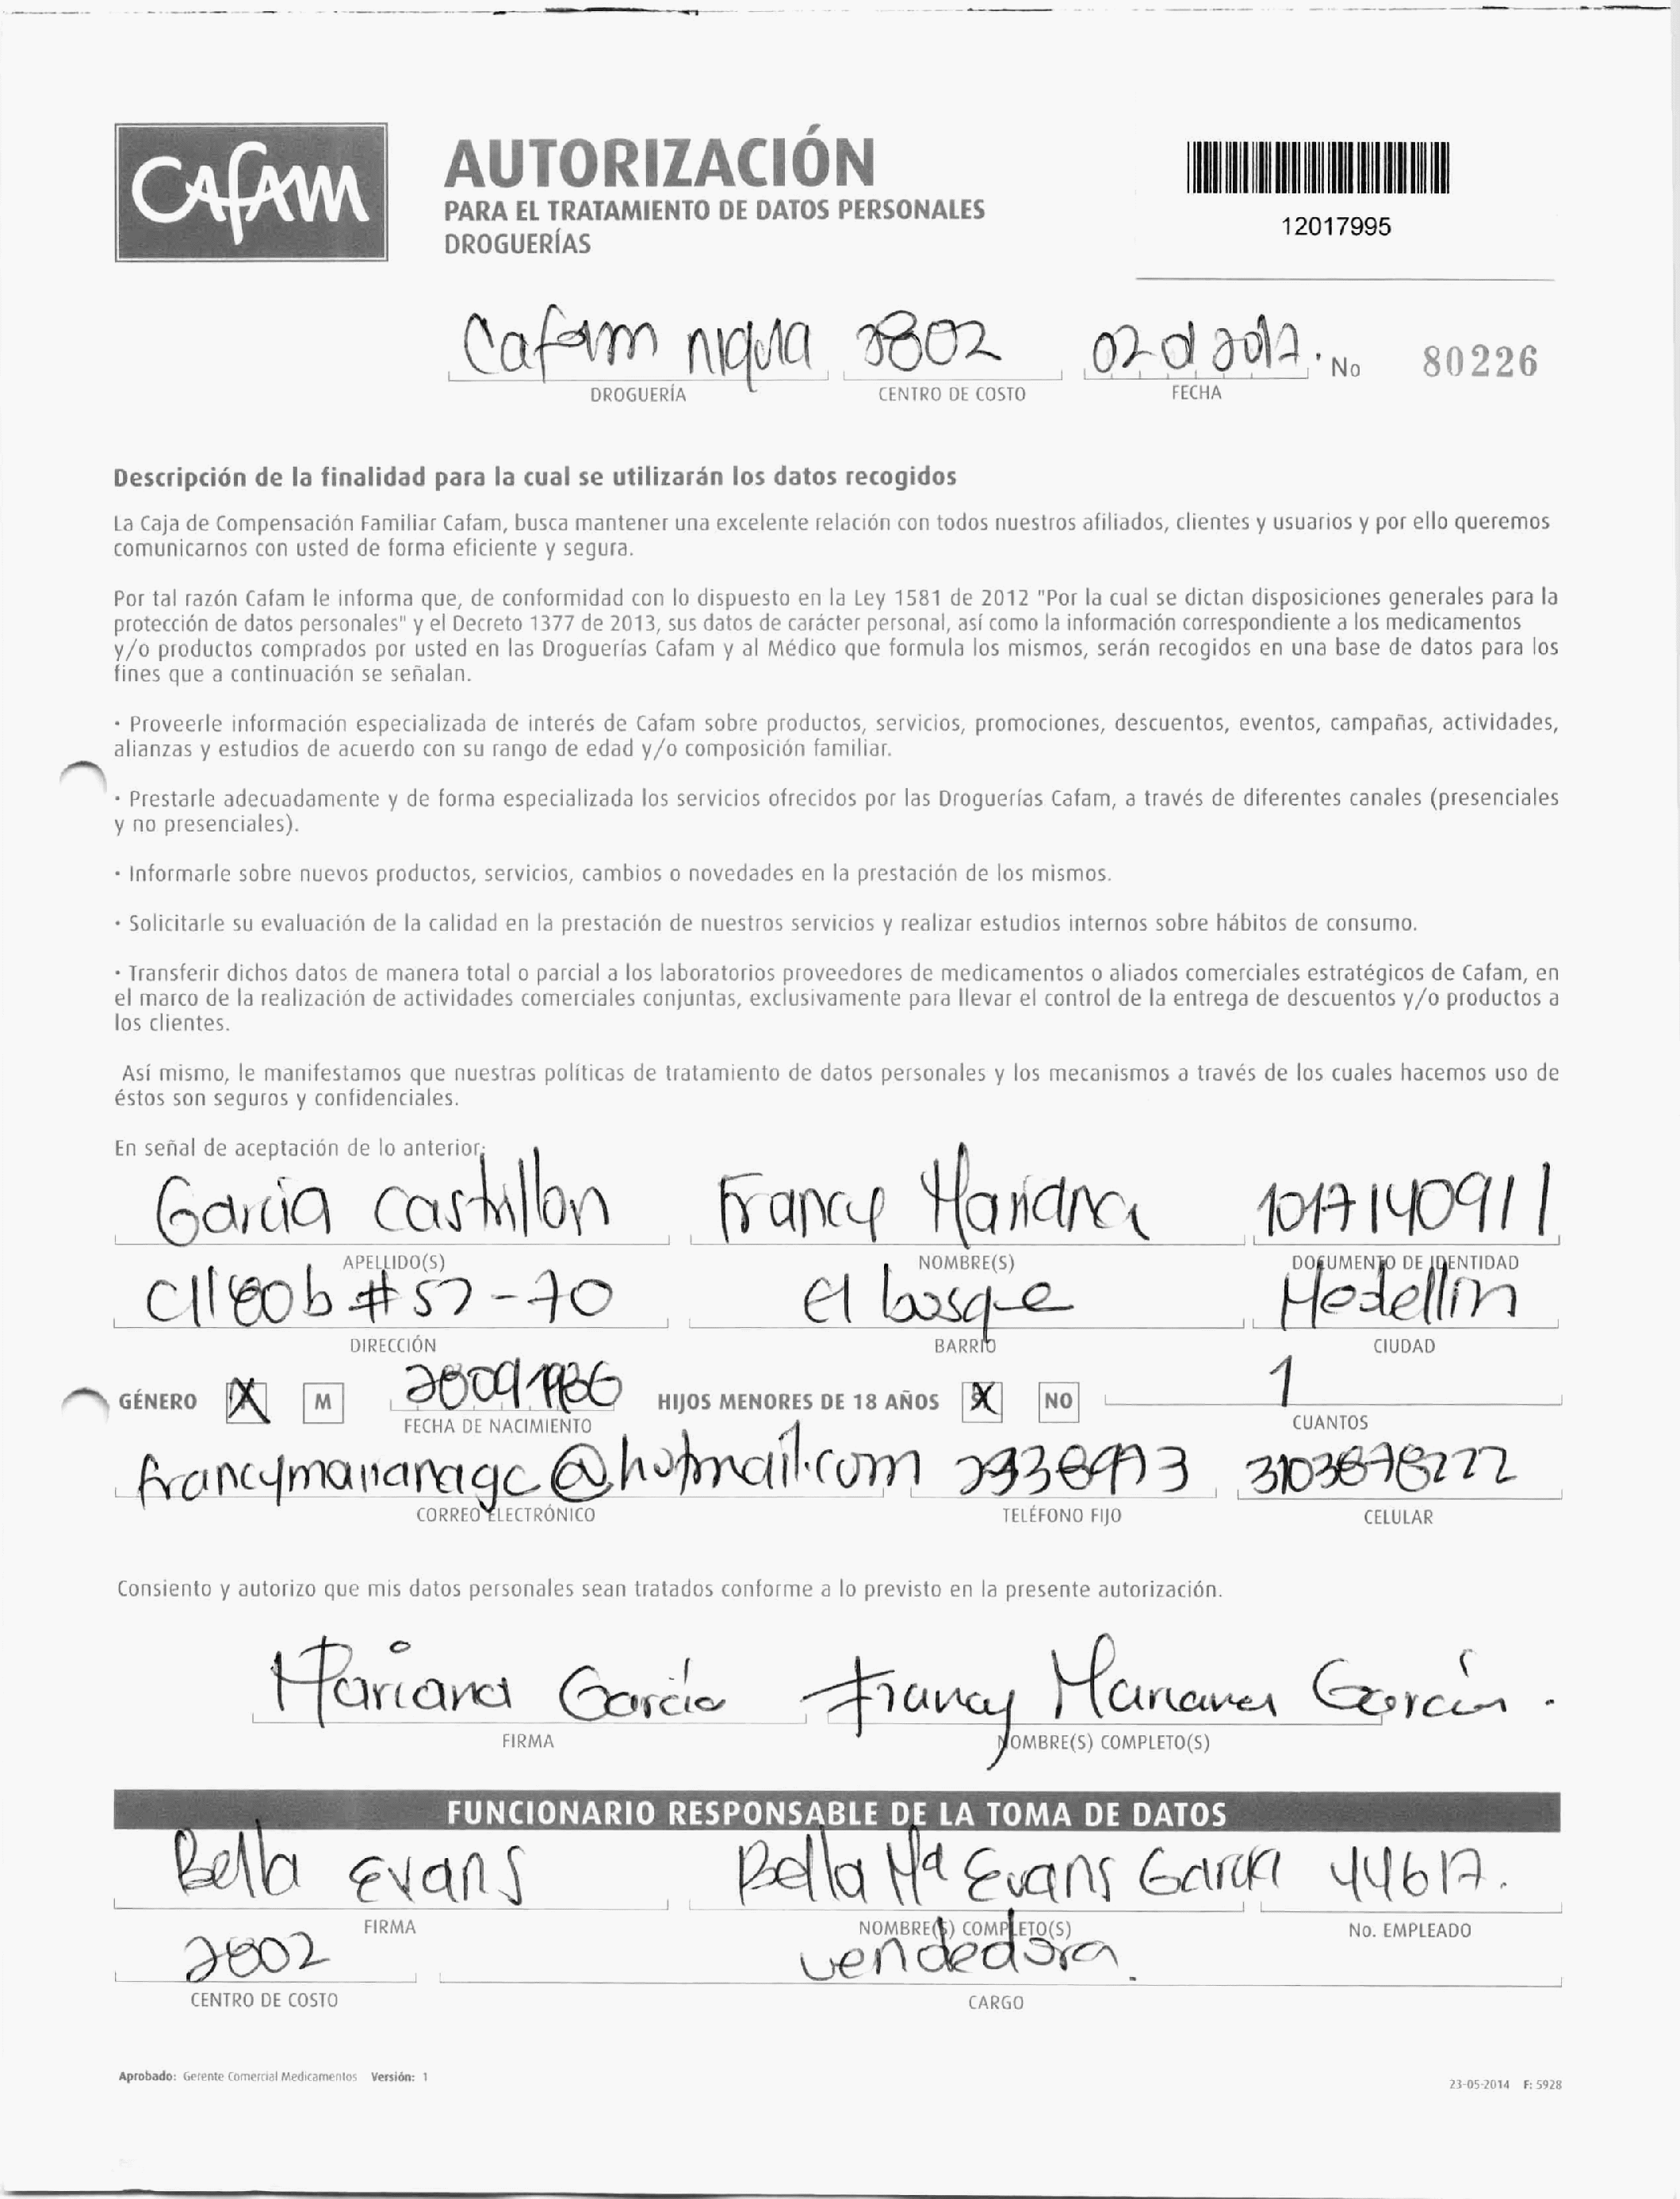 CAFAM
AUTORIZACIÓN
PARA EL TRATAMIENTO DE DATOS PERSONALES
DROGUERÍAS
12017995
Cafam niquia 2802 02 d 2017. No 80226
DROGUERÍA CENTRO DE COSTO FECHA
Descripción de la finalidad para la cual se utilizarán los datos recogidos
La Caja de Compensación Familiar Cafam, busca mantener una excelente relación con todos nuestros afiliados, clientes y usuarios y por ello queremos
comunicarnos con usted de forma eficiente y segura.
Por tal razón Cafam le informa que, de conformidad con lo dispuesto en la Ley 1581 de 2012 "Por la cual se dictan disposiciones generales para la
protección de datos personales" y el Decreto 1377 de 2013, sus datos de carácter personal, así como la información correspondiente a los medicamentos
y/o productos comprados por usted en las Droguerías Cafam y al Médico que formula los mismos, serán recogidos en una base de datos para los
fines que a continuación se señalan.
· Proveerle información especializada de interés de Cafam sobre productos, servicios, promociones, descuentos, eventos, campañas, actividades,
alianzas y estudios de acuerdo con su rango de edad y/o composición familiar.
· Prestarle adecuadamente y de forma especializada los servicios ofrecidos por las Droguerías Cafam, a través de diferentes canales (presenciales
y no presenciales).
· Informarle sobre nuevos productos, servicios, cambios o novedades en la prestación de los mismos.
· Solicitarle su evaluación de la calidad en la prestación de nuestros servicios y realizar estudios internos sobre hábitos de consumo.
· Transferir dichos datos de manera total o parcial a los laboratorios proveedores de medicamentos o aliados comerciales estratégicos de Cafam, en
el marco de la realización de actividades comerciales conjuntas, exclusivamente para llevar el control de la entrega de descuentos y/o productos a
los clientes.
Así mismo, le manifestamos que nuestras políticas de tratamiento de datos personales y los mecanismos a través de los cuales hacemos uso de
éstos son seguros y confidenciales.
En señal de aceptación de lo anterior:
Garcia Castrillon Francy Mariana 1017140911
APELLIDO(S) NOMBRE(S) DOCUMENTO DE IDENTIDAD
Cll 80b # 57-70 el bosque Medellin
DIRECCIÓN BARRIO CIUDAD
GÉNERO X M 28091986 HIJOS MENORES DE 18 AÑOS X NO 1
FECHA DE NACIMIENTO CUANTOS
francymarianagc@hotmail.com 3103878222
CORREO ELECTRÓNICO TELÉFONO FIJO CELULAR
Consiento y autorizo que mis datos personales sean tratados conforme a lo previsto en la presente autorización.
Mariana Garcia Francy Mariana Garcia.
FIRMA NOMBRE(S) COMPLETO(S)
FUNCIONARIO RESPONSABLE DE LA TOMA DE DATOS
Bella Evans Bella Ma Evans Garcia 44617.
FIRMA NOMBRE(S) COMPLETO(S) No. EMPLEADO
2802 vendedora.
CENTRO DE COSTO CARGO
Aprobado: Gerente Comercial Medicamentos Versión: 1
23-05-2014 F: 5928